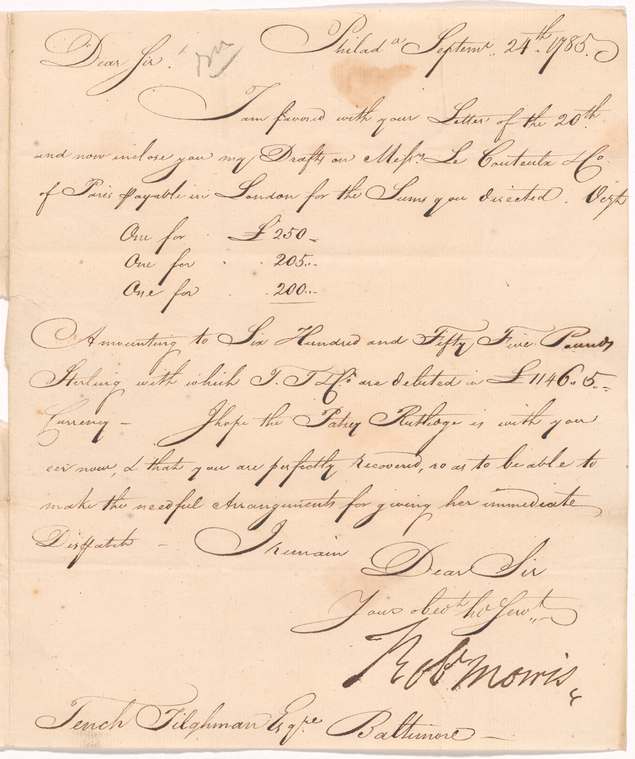 Philad.a Septemr. 24th. 1785.
Dear Sir
I am favored with your Letter of the 20th.
and now inclose you my Drafts on Messrs. Le Couteulx & Co.
of Paris payable in London for the Sums you directed. Vizt
One for £250..
One for 205..
One for 200..
Amounting to Six Hundred and Fifty Five Pounds
Sterling with which T. T & Co. are debited in £1146..5..
Currency – I hope the Patsey Rutledge is with you
eer now, & that you are perfectly recovered, so as to be able to
make the needful Arrangements for giving her immediate
Dispatch – I remain
Dear Sir
Your obedt. hb Servt.
Robt Morris
Tench Tilghman Esqre Baltimore –